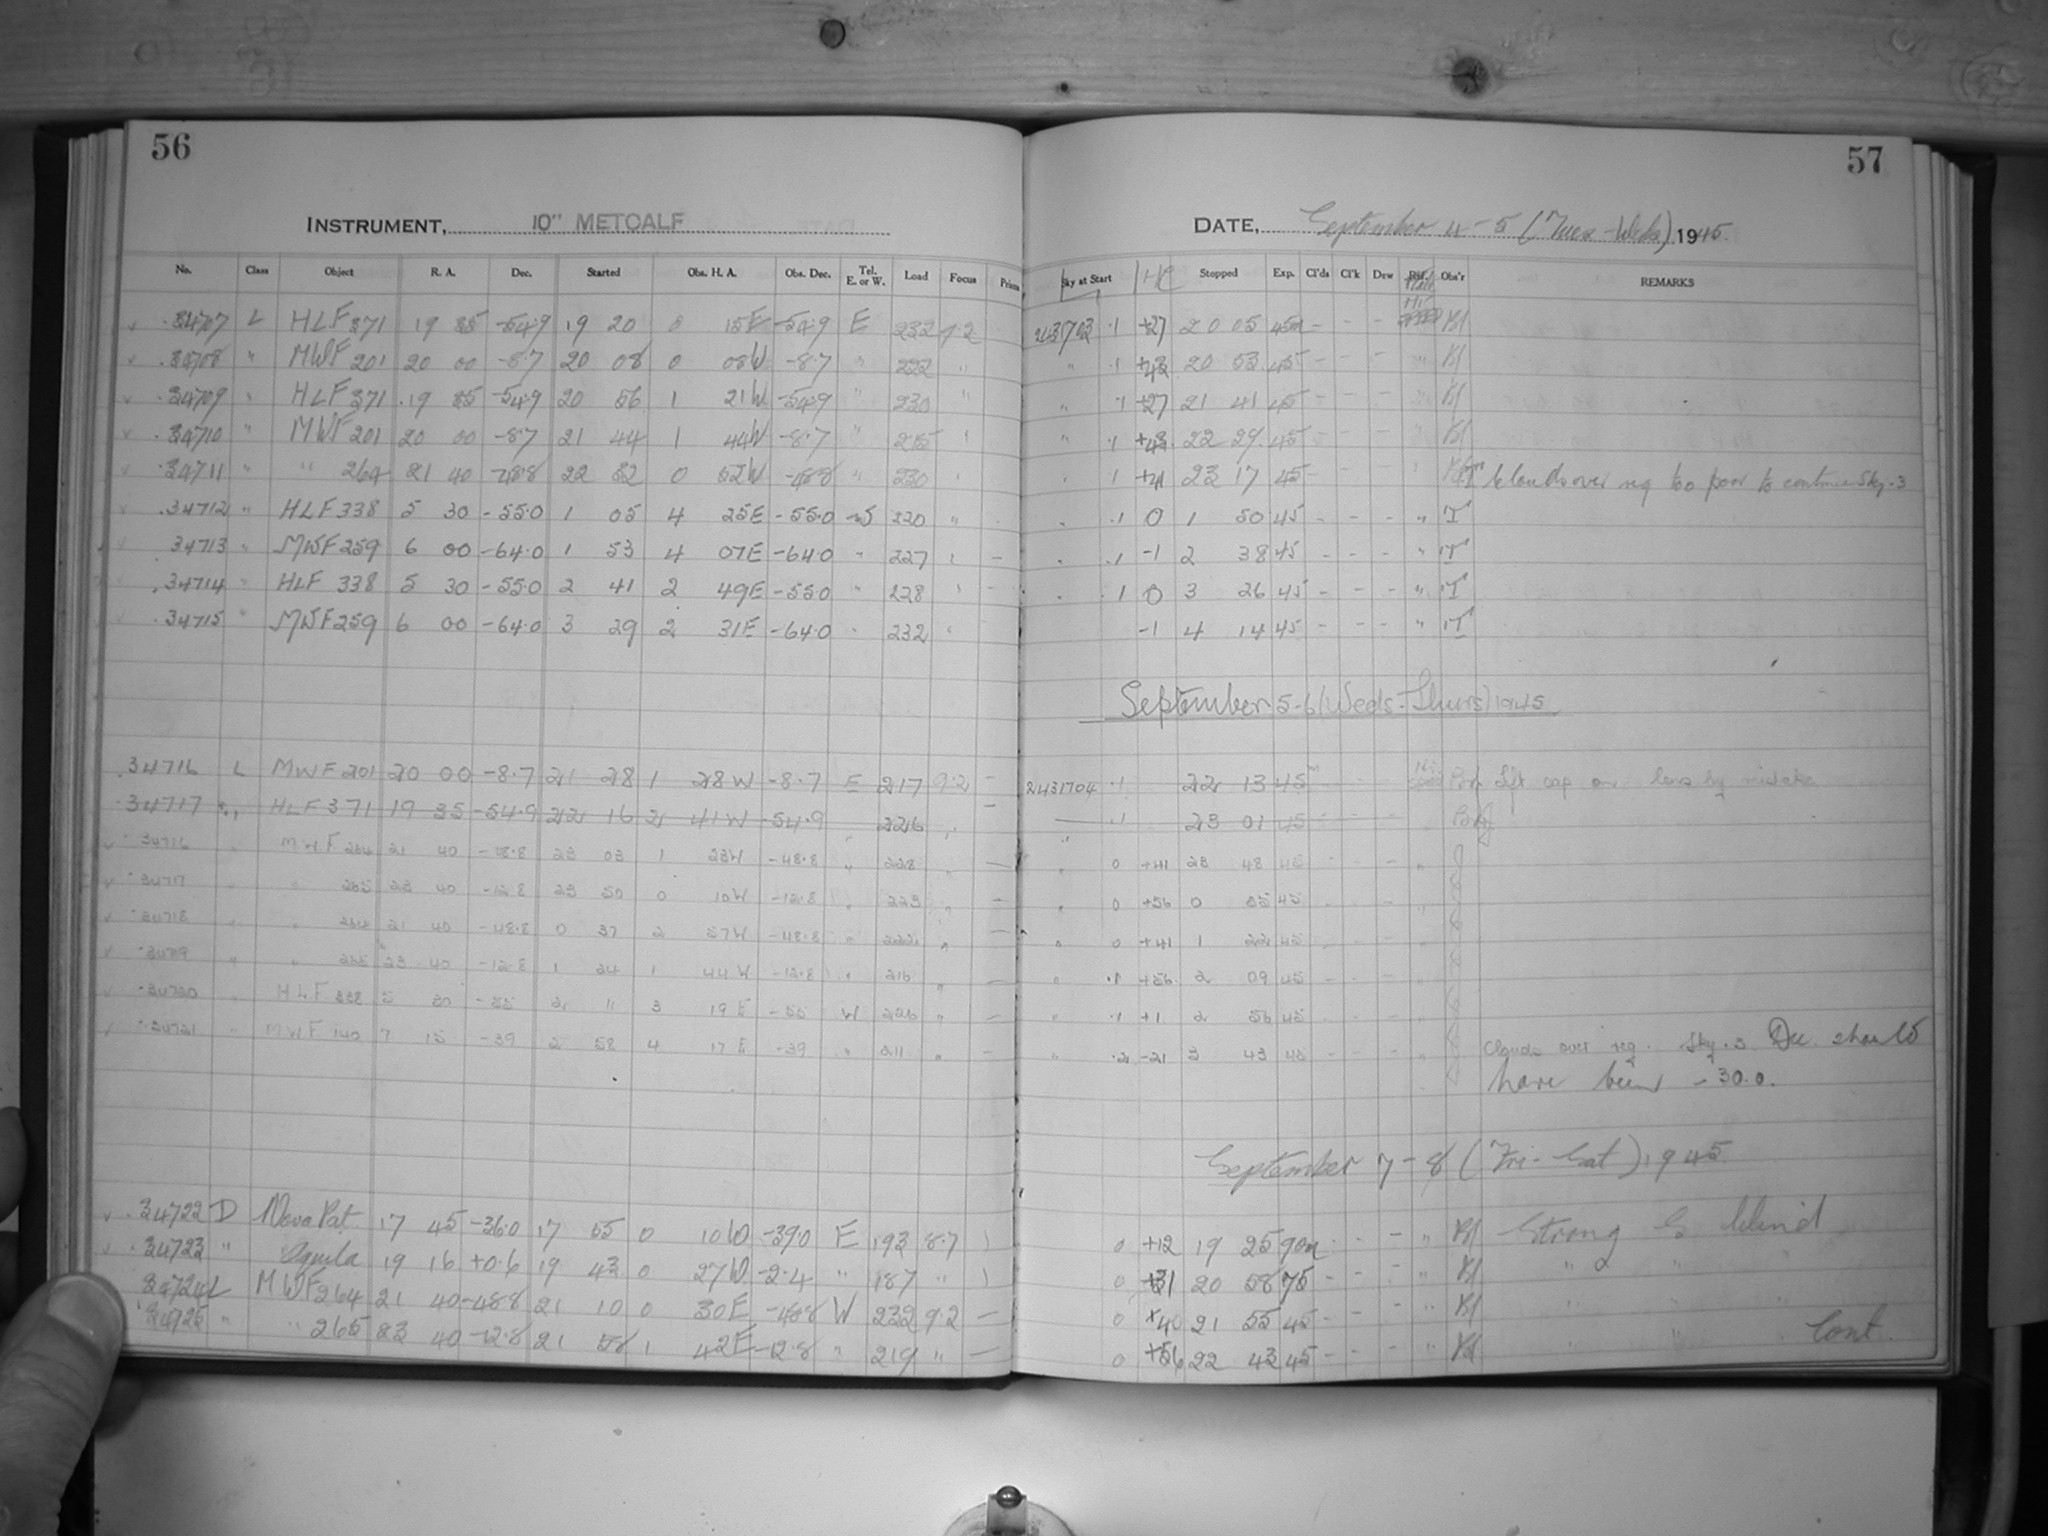 56
57
INSTRUMENT, 10" METCALF
DATE, September 4-5 (Tues-Weds) 1945.
No. Class Object R. A. Dec. Started Obs. H. A. Obs. Dec. Tel. E. or W. Load Focus Prism Sky at Start Stopped Exp. Cl'ds Cl'k Dew Obs'r REMARKS
34707 L HLF 371 19 35 -54.9 19 20 0 15E -54.9 E 232 9.2 2431703 .1 +27 20 05 45m - - -
.34708 " MWF 201 20 00 -8.7 20 08 0 08W -8.7 " 222 " " .1 +43 20 53 45 - - - "
.34709 " HLF 371 19 35 -54.9 20 56 1 21W -54.9 " 230 " " .1 +27 21 41 45 - - - "
.34710 " MWF 201 20 00 -8.7 21 44 1 44W -8.7 " 215 " " .1 +43 22 29 45 - - - "
.34711 " " 264 21 40 -48.8 22 32 0 52W -48.8 " 230 " .1 +41 23 17 45 - Clouds over reg too poor to continue Sky .3
.34712 " HLF 338 5 30 -55.0 1 05 4 25E -55.0 W 220 " .1 0 1 50 45 - - - " T
34713 " MWF 259 6 00 -64.0 1 53 4 07E -64.0 " 227 " - .1 -1 2 38 45 - - - " T
.34714 " HLF 338 5 30 -55.0 2 41 2 49E -55.0 " 228 " - .1 0 3 26 45 - - - " T
.34715 " MWF 259 6 00 -64.0 3 29 2 31E -64.0 " 232 " -1 4 14 45 - - - " T
September 5-6 (Weds-Thurs) 1945
.34716 L MWF 201 20 00 -8.7 21 28 1 28W -8.7 E 217 9.2 - 2431704 .1 22 13 45m Left cap on lens by mistake
.34717 " HLF 371 19 35 -54.9 22 16 2 41W -54.9 " 226 " - .1 23 01 45
34716 " MWF 264 21 40 -48.8 23 03 1 23W -48.8 " 228 " - " 0 +41 23 48 45 - - - "
34717 " " 265 23 40 -12.8 23 50 0 10W -12.8 " 223 " - " 0 +56 0 35 45 - - - "
34718 " " 264 21 40 -48.8 0 37 2 57W -48.8 " 222 " - " 0 +41 1 22 45 - - - "
34719 " " 265 23 40 -12.8 1 24 1 44W -12.8 " 216 " - " .1 +56 2 09 45 - - - "
34720 " HLF 338 5 30 -55 2 11 3 19E -55 W 226 " - " .1 +1 2 56 45 - - - "
34721 " MWF 140 7 15 -39 2 58 4 17E -39 " 211 " - " .2 -21 3 43 45 - - - " Clouds over reg. Sky .3 Dec should
have been -30.0.
September 7-8 (Fri-Sat) 1945
.34722 D Nova Pat. 17 45 -36.0 17 55 0 10W -39.0 E 193 8.7 0 +12 19 25 90m - - " Strong S. Wind
.34723 " Aquila 19 16 +0.6 19 43 0 27W -2.4 " 187 " 0 +31 20 58 75 - - - " " "
34724 L MWF 264 21 40 -48.8 21 10 0 30E -48.8 W 232 9.2 - 0 +40 21 55 45 - - - " " " "
34725 " " 265 23 40 -12.8 21 58 1 42E -12.8 " 219 " - 0 +56 22 43 45 - - - " " " "
Cont.